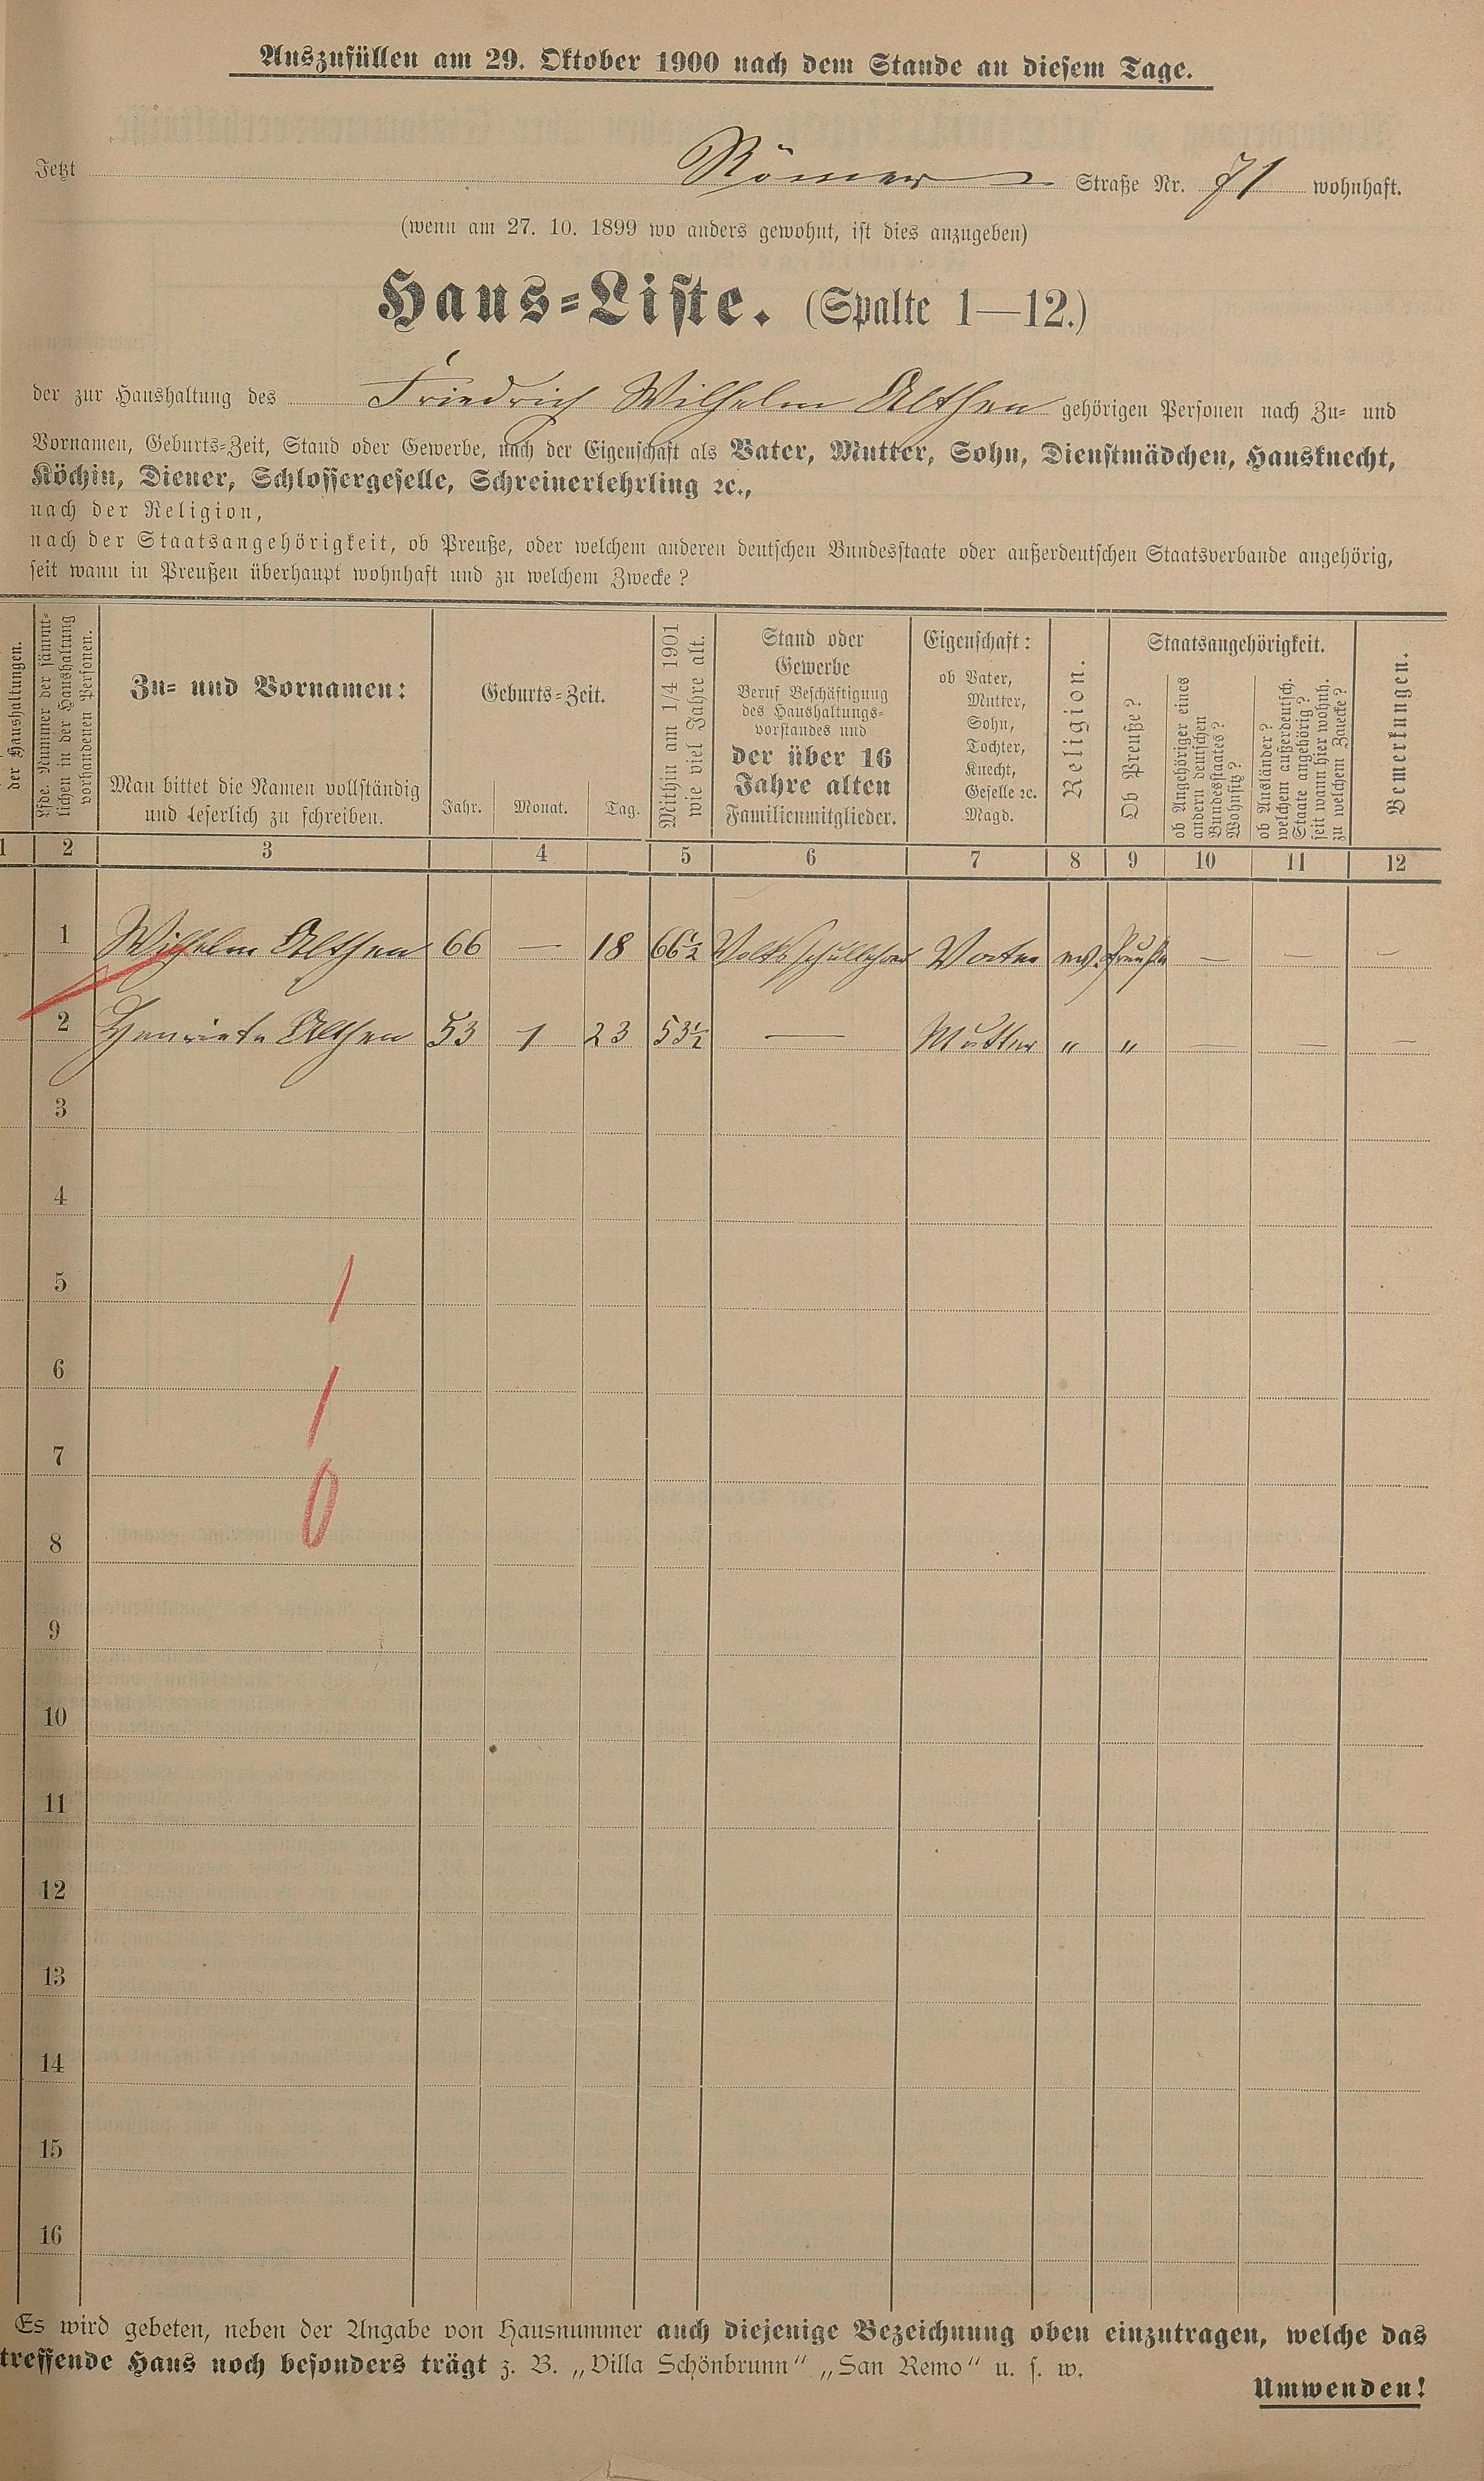 Auszufüllen am 29. Oktober 1900 nach dem Stande an diesem Tage.
Jetzt Römer Straße Nr. 71 wohnhaft.
(wenn am 27. 10. 1899 wo anders gewohnt, ist dies anzugeben)
Haus=Liste. (Spalte 1—12.)
der zur Haushaltung des Friedrich Wilhelm Althen gehörigen Personen nach Zu= und
Vornamen, Geburts=Zeit, Stand oder Gewerbe, nach der Eigenschaft als Vater, Mutter, Sohn, Dienstmädchen, Hausknecht,
Köchin, Diener, Schlossergeselle, Schreinerlehrling ꝛc.,
nach der Religion,
nach der Staatsangehörigkeit, ob Preuße, oder welchem anderen deutschen Bundesstaate oder außerdeutschen Staatsverbande angehörig,
seit wann in Preußen überhaupt wohnhaft und zu welchem Zwecke?
der Haushaltungen.
Lfde. Nummer der sämmt=
lichen in der Haushaltung
vorhandenen Personen.
Zu= und Vornamen:
Man bittet die Namen vollständig
und leserlich zu schreiben.
Geburts=Zeit.
Jahr. Monat. Tag.
Mithin am 1/4 1901
wie viel Jahre alt.
Stand oder
Gewerbe
Beruf Beschäftigung
des Haushaltungs=
vorstandes und
der über 16
Jahre alten
Familienmitglieder.
Eigenschaft:
ob Vater,
Mutter,
Sohn,
Tochter,
Knecht,
Geselle ꝛc.
Magd.
Religion.
Staatsangehörigkeit.
Ob Preuße?
ob Angehöriger eines
andern deutschen
Bundesstaates?
Wohnsitz?
ob Ausländer?
welchem außerdeutsch.
Staate angehörig?
seit wann hier wohnh.
zu welchem Zwecke?
Bemerkungen.
1 2 3 4 5 6 7 8 9 10 11 12
1 Wilhelm Althen 66 — 18 66½ Volksschullehrer Vater ev. Preuße — — —
2 Henriete Althen 53 1 23 53½ — Mutter " " — — —
3
4
5
1
6
1
7
0
8
9
10
11
12
13
14
15
16
Es wird gebeten, neben der Angabe von Hausnummer auch diejenige Bezeichnung oben einzutragen, welche das
treffende Haus noch besonders trägt z. B. „Villa Schönbrunn" „San Remo" u. s. w.
Umwenden!